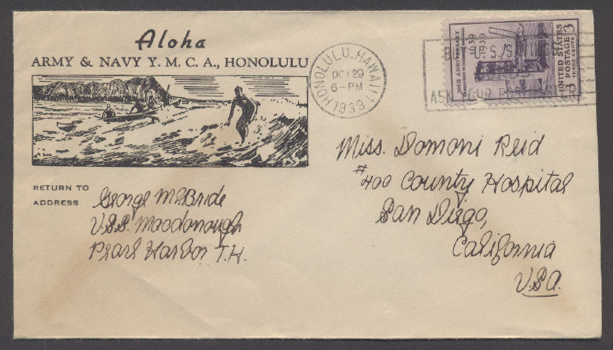 Aloha
ARMY & NAVY Y. M. C. A., HONOLULU
HONOLULU, HAWAII
OCT 29
6-PM
1939
1639 1939
UNITED STATES POSTAGE
3 3
RETURN TO
ADDRESS
George McBride
U.S.S. Macdonough
Pearl Harbor T.H.
Miss. Domoni Reid
#400 County Hospital
San Diego,
California
USA.